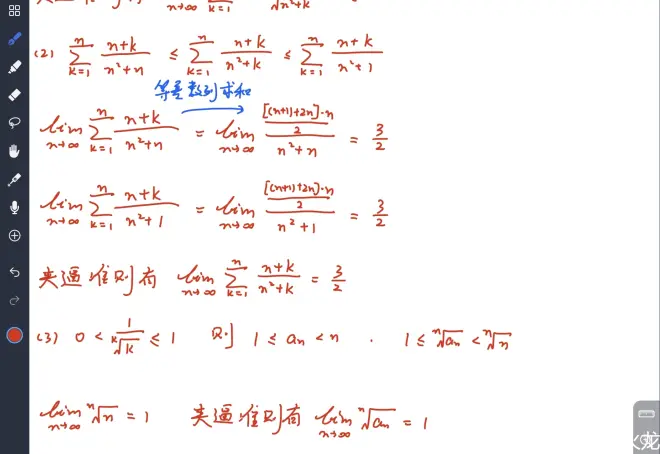 (2) ∑_{k=1}^{n} (n+k)/(n²+n) ≤ ∑_{k=1}^{n} (n+k)/(n²+k) ≤ ∑_{k=1}^{n} (n+k)/(n²+1)
等差数列求和
lim_{n→∞} ∑_{k=1}^{n} (n+k)/(n²+n) = lim_{n→∞} ([(n+1)+2n]·n/2)/(n²+n) = 3/2
lim_{n→∞} ∑_{k=1}^{n} (n+k)/(n²+1) = lim_{n→∞} ([(n+1)+2n]·n/2)/(n²+1) = 3/2
夹逼准则有 lim_{n→∞} ∑_{k=1}^{n} (n+k)/(n²+k) = 3/2
(3) 0 < 1/ᵏ√k ≤ 1 则 1 ≤ aₙ < n . 1 ≤ ⁿ√aₙ < ⁿ√n
lim_{n→∞} ⁿ√n = 1 夹逼准则有 lim_{n→∞} ⁿ√aₙ = 1